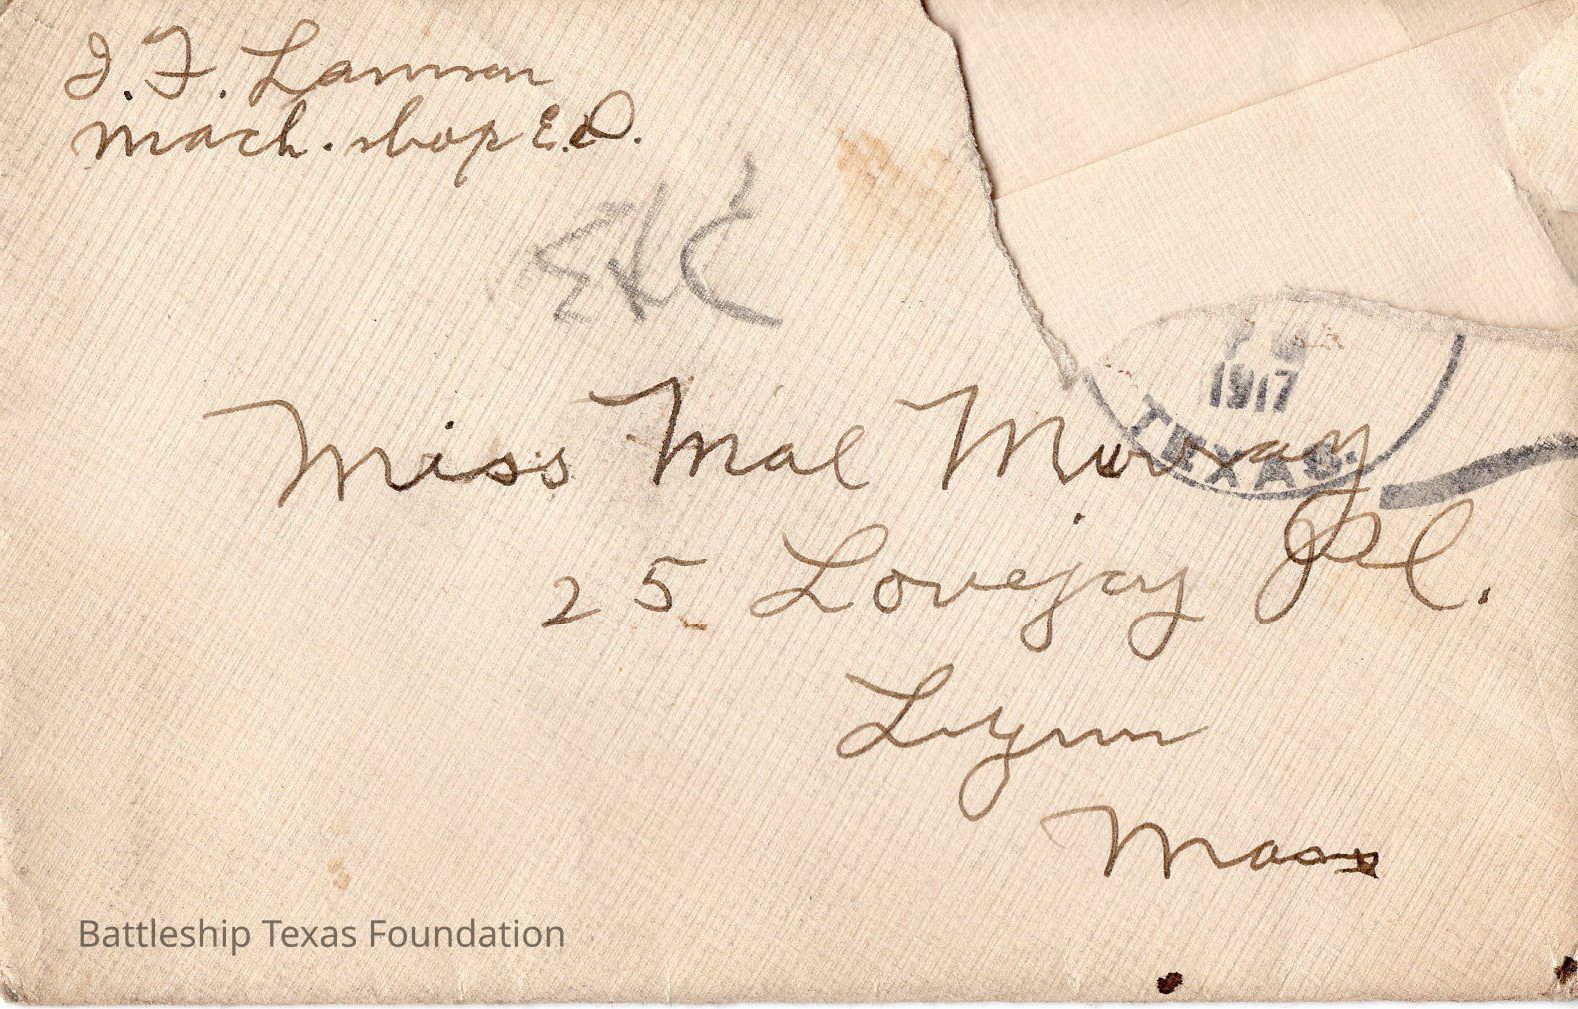 J. F. Lamson
Mach. shop E.D.
Miss Mae Murray
25 Lovejoy Pl.
Lynn
Mass
1917
TEXAS.
Battleship Texas Foundation